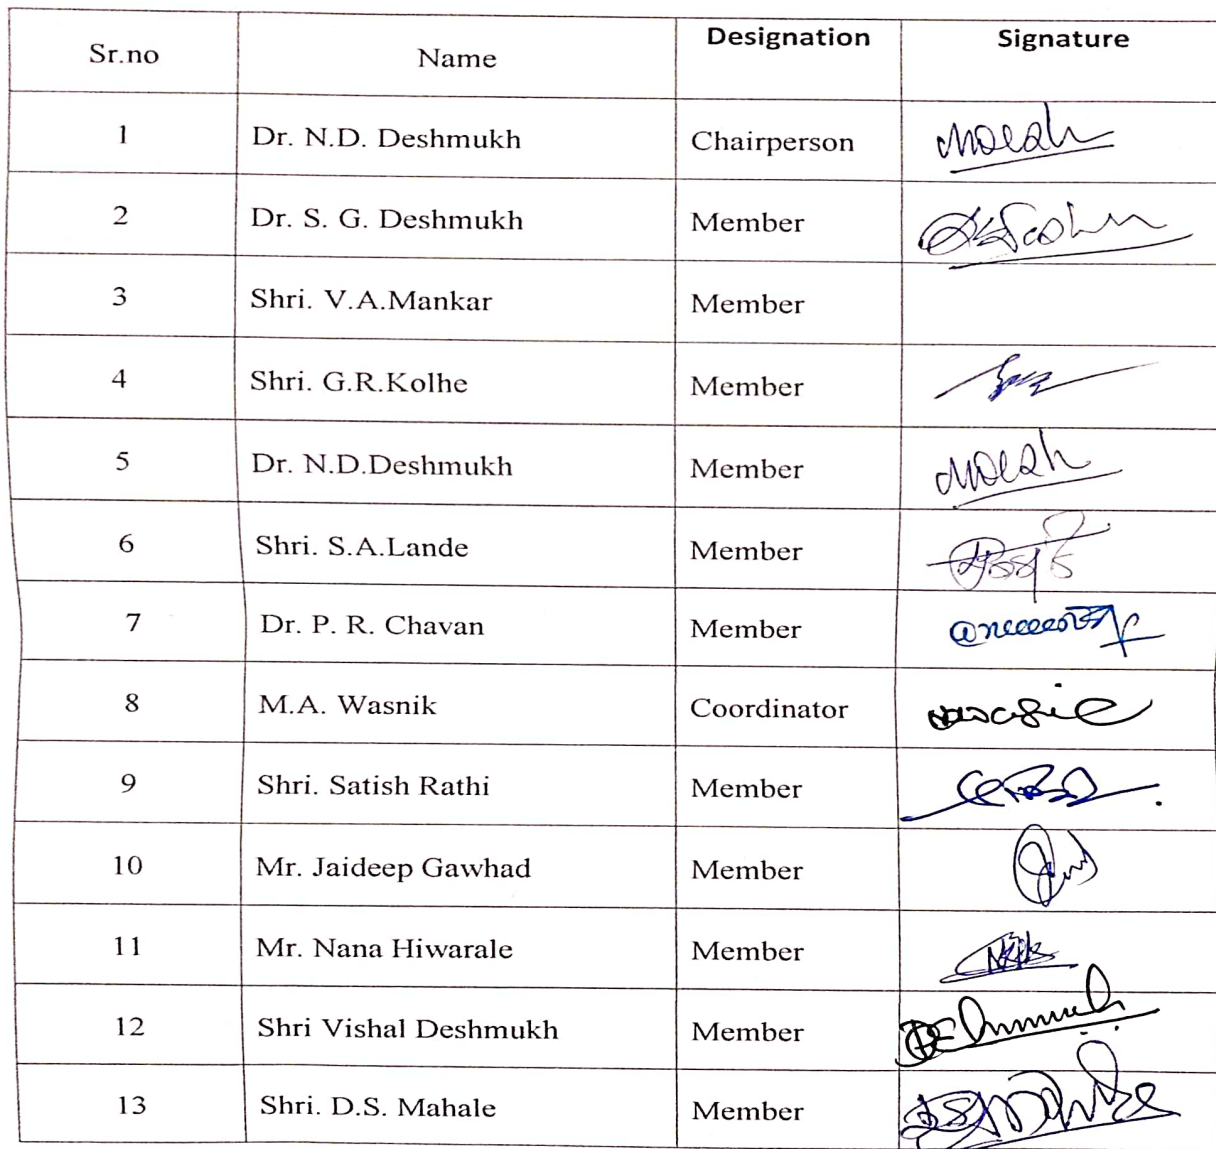 Sr.no Name Designation Signature
1 Dr. N.D. Deshmukh Chairperson
2 Dr. S. G. Deshmukh Member
3 Shri. V.A.Mankar Member
4 Shri. G.R.Kolhe Member
5 Dr. N.D.Deshmukh Member
6 Shri. S.A.Lande Member
7 Dr. P. R. Chavan Member
8 M.A. Wasnik Coordinator
9 Shri. Satish Rathi Member
10 Mr. Jaideep Gawhad Member
11 Mr. Nana Hiwarale Member
12 Shri Vishal Deshmukh Member
13 Shri. D.S. Mahale Member